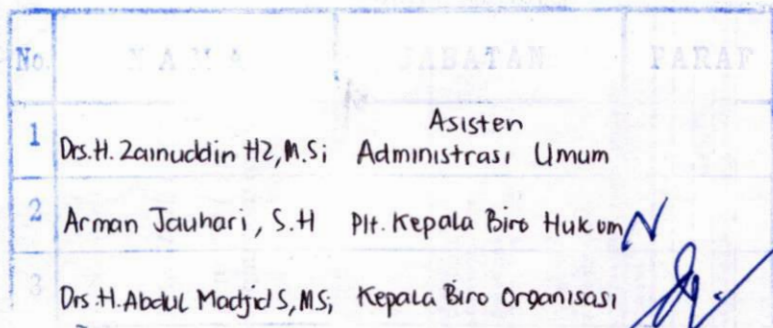 No. NAMA JABATAN PARAF
1 Drs.H. Zainuddin HZ, M.Si Asisten Administrasi Umum
2 Arman Jauhari, S.H Plt. Kepala Biro Hukum
3 Drs.H. Abdul Madjid S, MSi Kepala Biro Organisasi